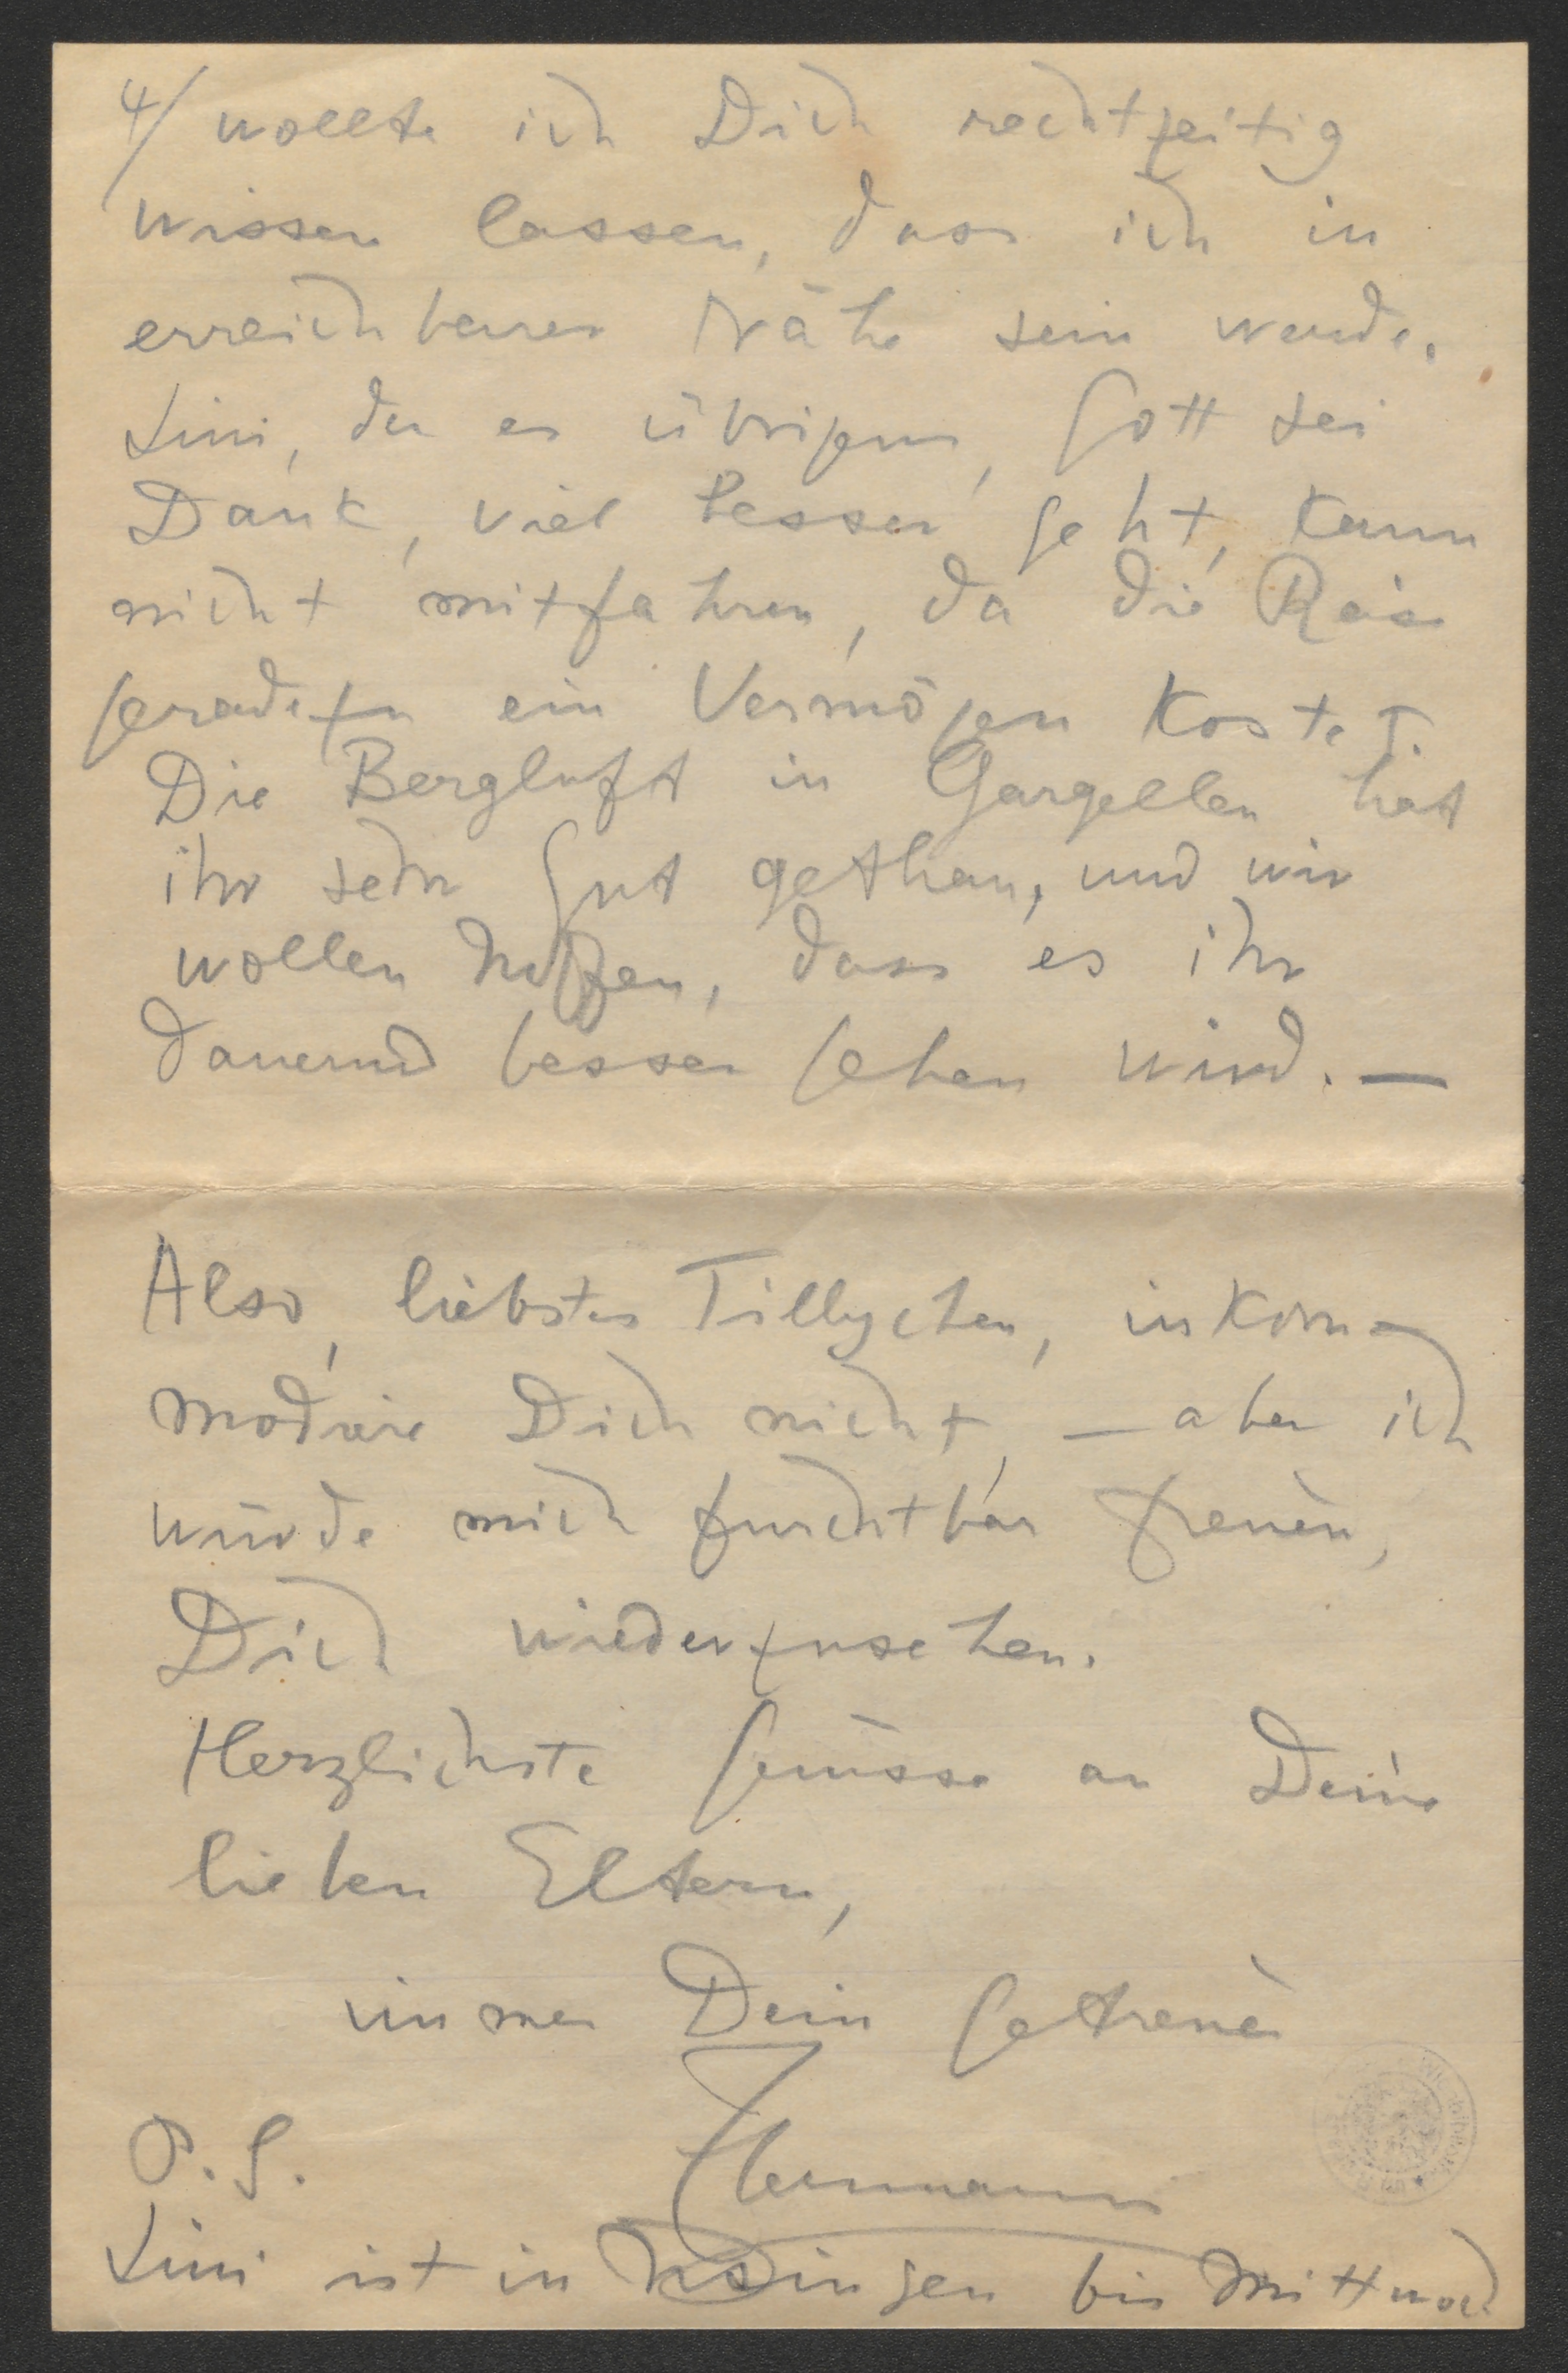 4/ wollte ich Dich rechtzeitig
wissen lassen, dass ich in
erreichbarer Nähe sein werde.
Lini, der es übrigens, Gott sei
Dank, viel besser geht, kann
nicht mitfahren, da die Reise
geradezu ein Vermögen kostet.
Die Bergluft in Gargellen hat
ihr sehr gut gethan, und wir
wollen hoffen, dass es ihr
dauernd besser gehen wird. —
Also, liebstes Tillychen, inkom-
modiere Dich nicht, — aber ich
würde mich furchtbar freuen,
Dich wiederzusehen.
Herzlichste Grüsse an Deine
lieben Eltern,
immer Dein getreuer
Hermann
P.S.
Lini ist in bis Mittwoch